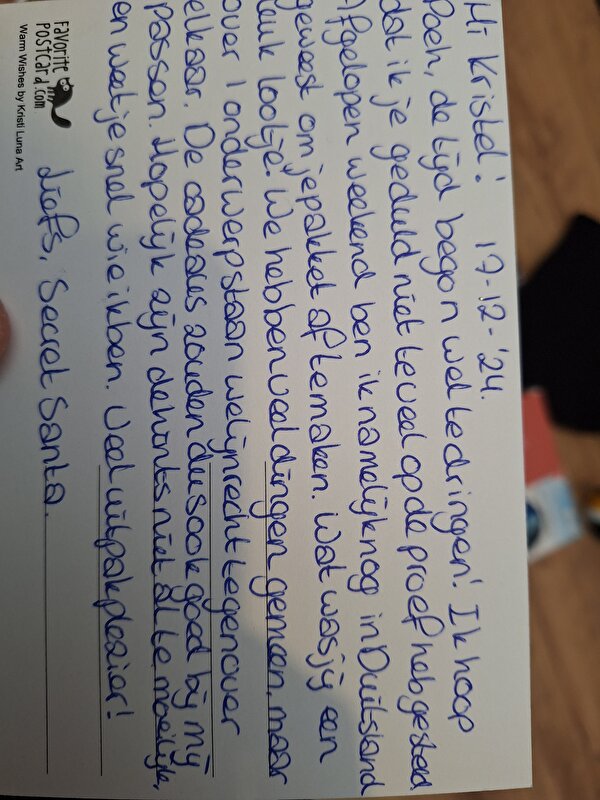 Hi Kristel! 17-12-'24.
Poeh, de tijd begon wel te dringen! Ik hoop
dat ik je geduld niet te veel op de proef heb gesteld.
Afgelopen weekend ben ik namelijk nog in Duitsland
geweest om je pakket af te maken. Wat was jij een
leuk lootje! We hebben veel dingen gemeen, maar
over 1 onderwerp staan we lijnrecht tegenover
elkaar. De cadeaus zouden dus ook goed bij mij
passen. Hopelijk zijn de hints niet ál te moeilijk,
en weet je snel wie ik ben. Veel uitpakplezier!
Liefs, Secret Santa.
FAVORITE
POSTCARD.com
Warm Wishes by Kristi Luna Art